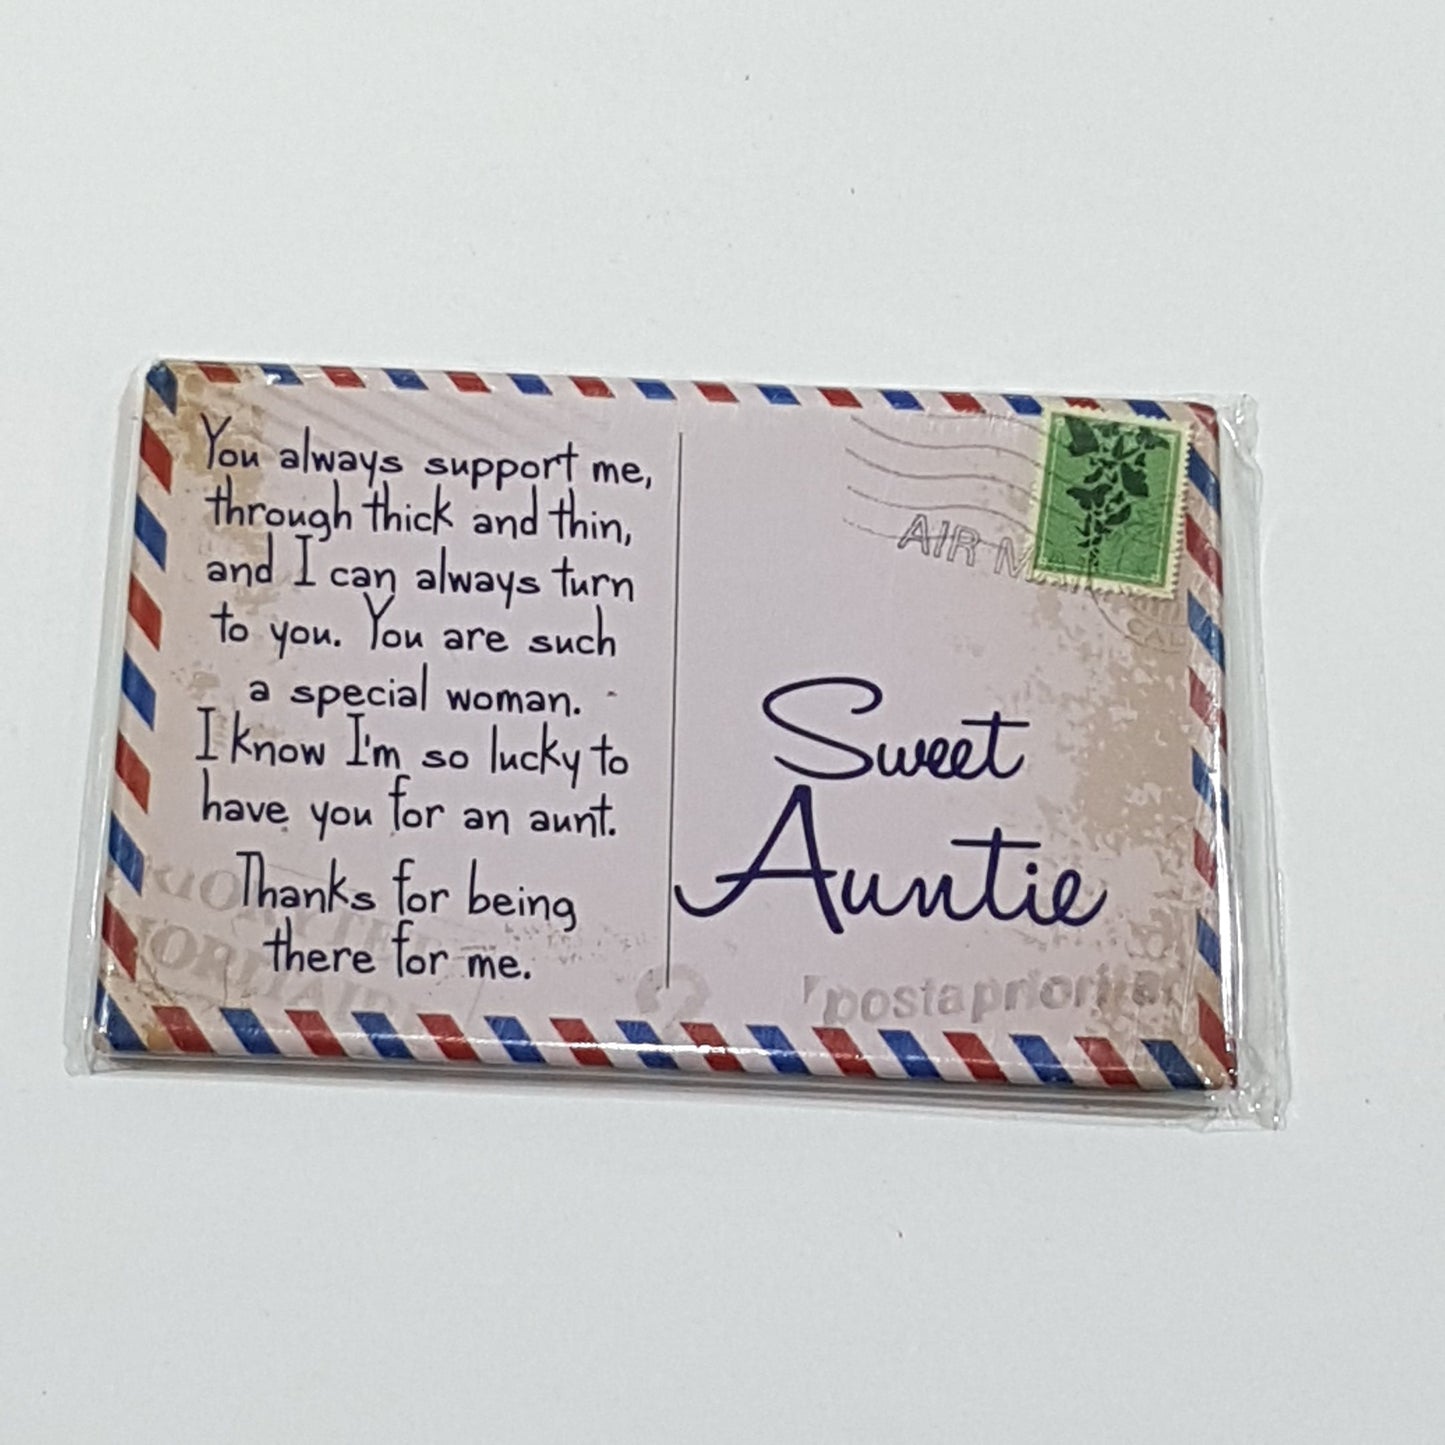 You always support me,
through thick and thin,
and I can always turn
to you. You are such
a special woman.
I know I'm so lucky to
have you for an aunt.
Thanks for being
there for me.
AIR MAIL
Sweet
Auntie
postaprioritaria